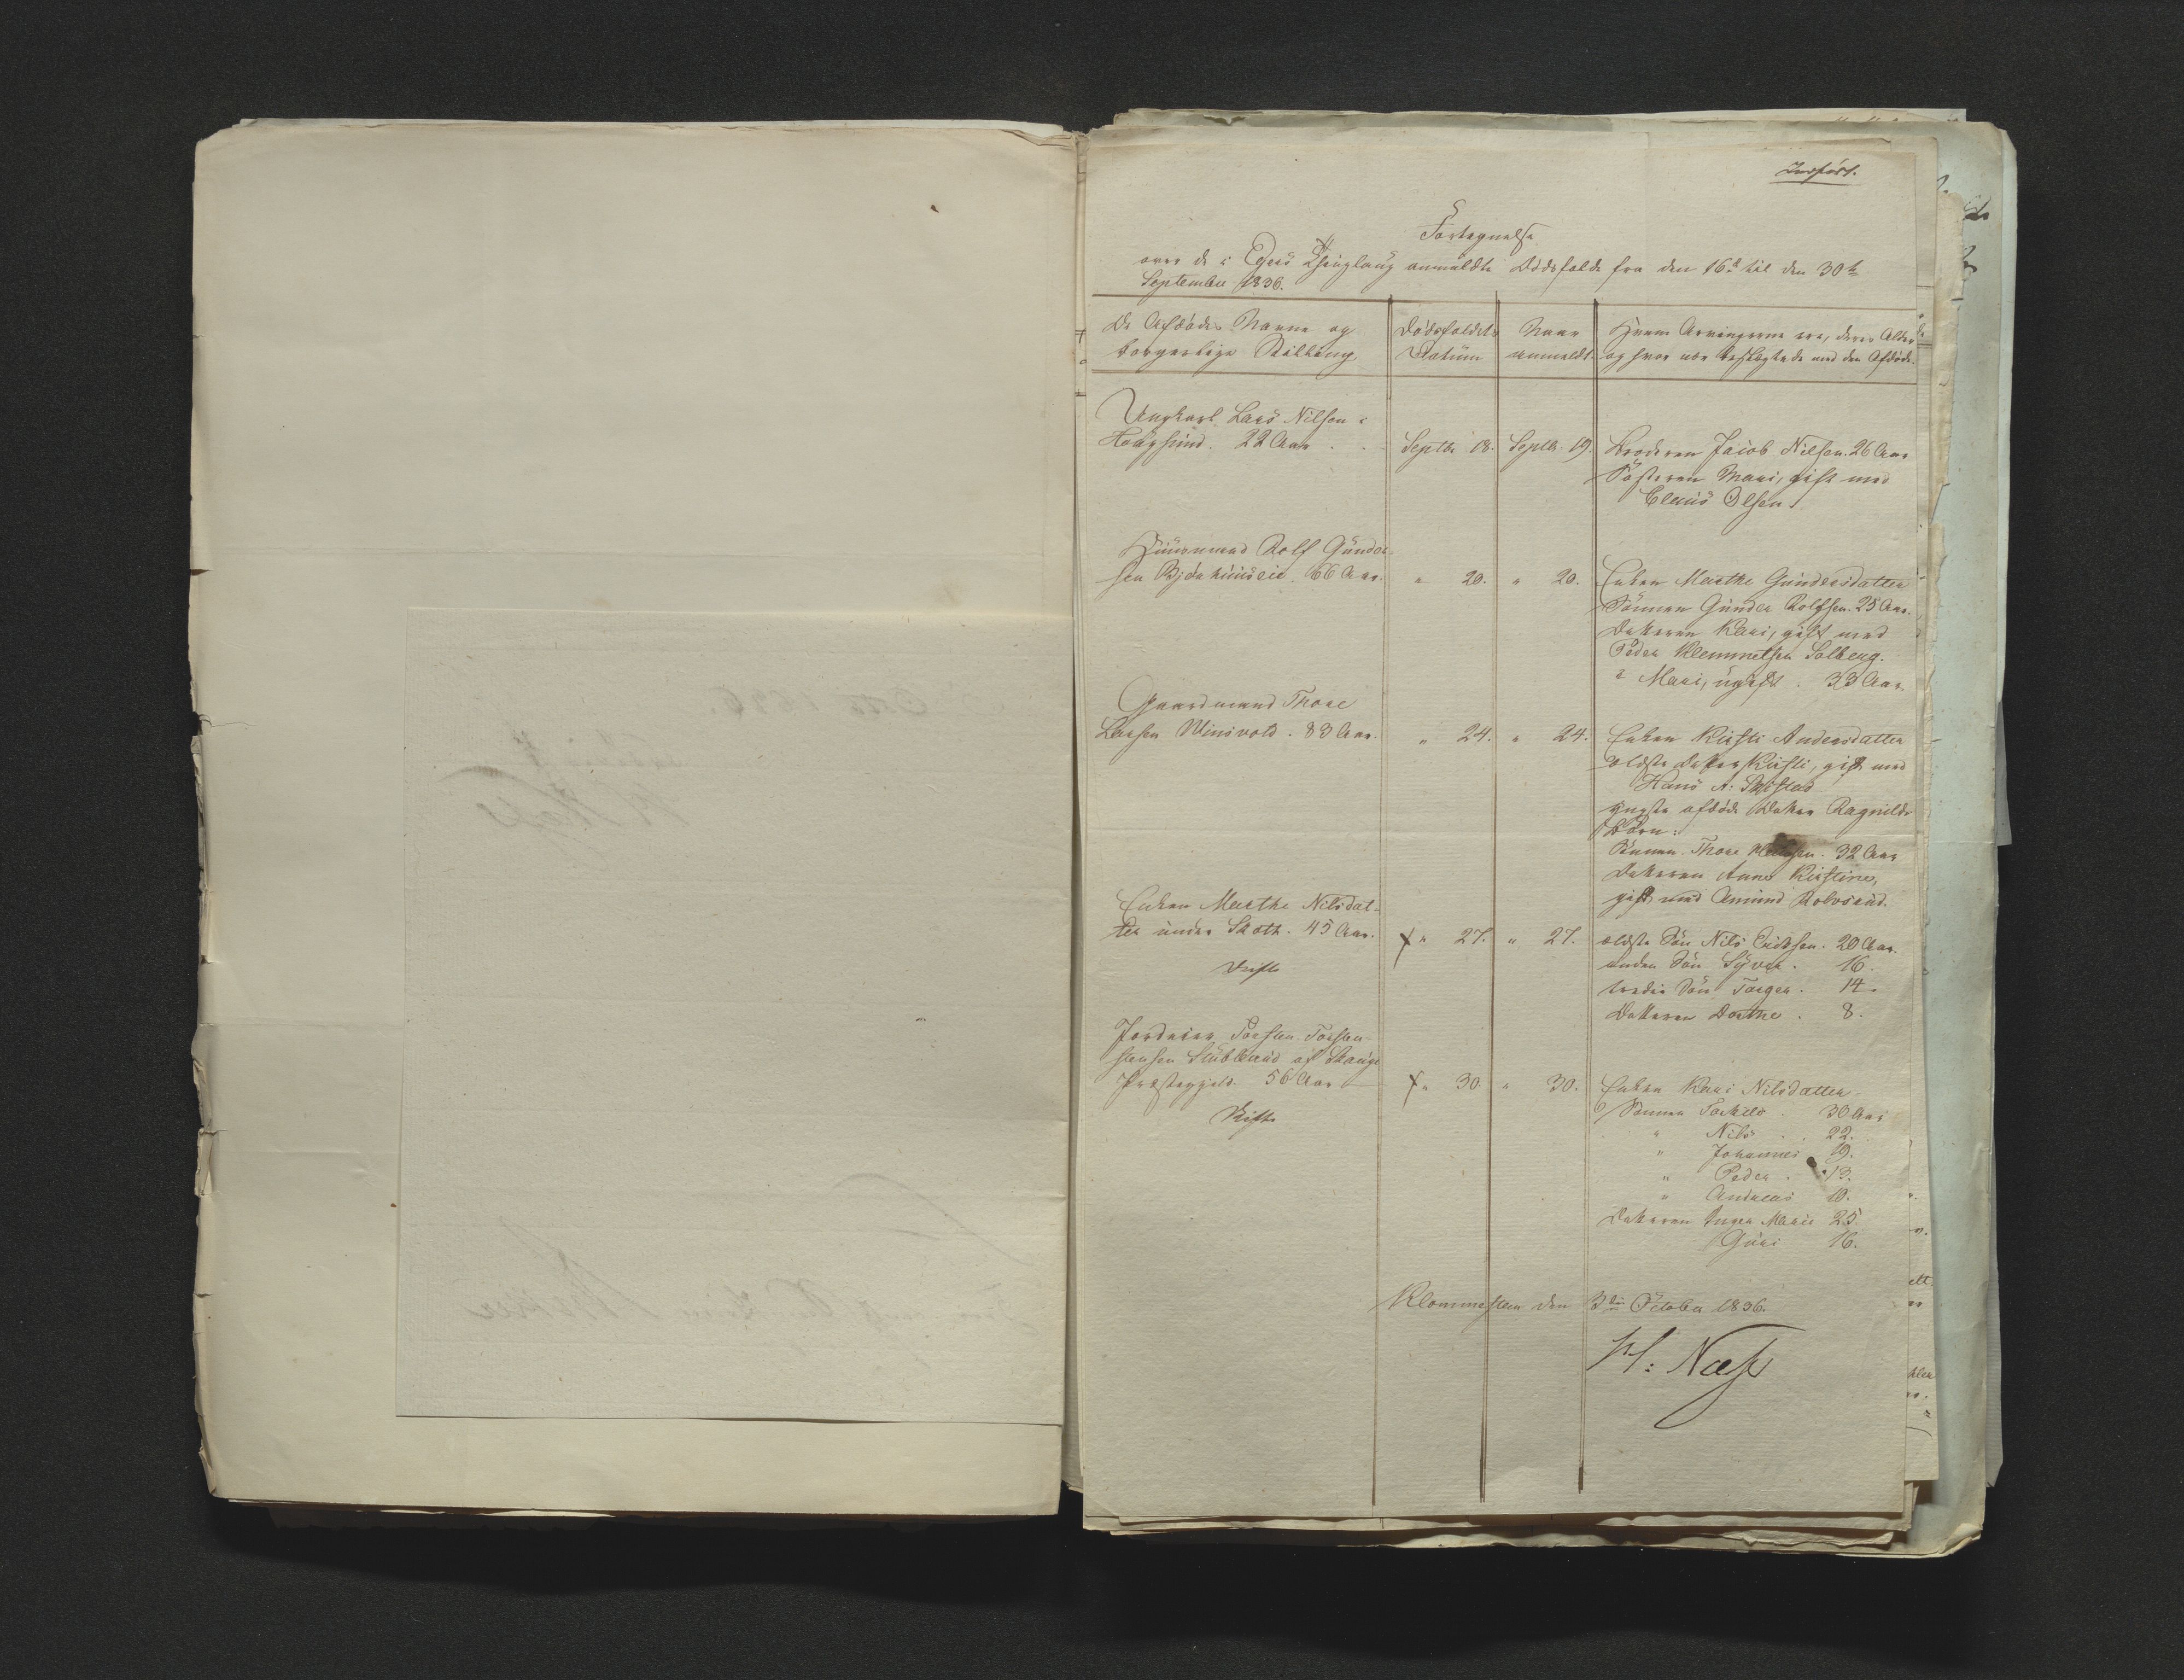 Indført.
Fortegnelse
over de i Egers Thinglaug anmeldte Dødsfald fra den 16de til den 30te
September 1836.
De Afdødes Navne og borgerlige Stilling
Dødsfaldets Datum
Naar anmeldt
Hvem Arvingerne ere, deres Alder og hvor nær beslægtede med den Afdøde.
Ungkarl Lars Nilsen i
Hougsund. 22 Aar
Septbr 18. Septbr 19.
Broderen Jacob Nilsen. 26 Aar
Søsteren Mari, gift med
Claus Olsen.
Huusmand Rolf Gunder-
sen 66 Aar.
" 20. " 20.
Enken Marthe Gundersdatter
Sønnen Gunder Rolfsen. 25 Aar.
Datteren Kari, gift med
Peder Klemmetsen Solberg.
" Mari, ugift. 33 Aar.
Gaardmand Thore
Larsen 83 Aar.
" 24. " 24.
Enken Kirsti Andersdatter
Ældste Datter Kirsti, gift med
Hans A:
yngste afdøde Datter Ragnilds
Børn:
Sønnen Thore 32 Aar
Datteren Anne Kirstine,
gift med Amund Rolvsrud.
Enken Marthe Nilsdat-
ter under 45 Aar.
Skifte
" 27. " 27.
ældste Søn Nils Eriksen. 20 Aar.
anden Søn Syver. 16.
tredie Søn Torger. 14.
Datteren Dorthe. 8.
Jordeier Torsten Torsten-
stensen Stubberud af
Præstegjeld. 56 Aar
Skifte
" 30. " 30.
Enken Kari Nilsdatter
Sønnen Torkild 30 Aar
" Nils 22.
" Johannes 19.
" Peder 13.
" Andreas 10.
Datteren Inger Marie 25.
Guri 16.
Klommesteen den 3die October 1836.
H: Næss